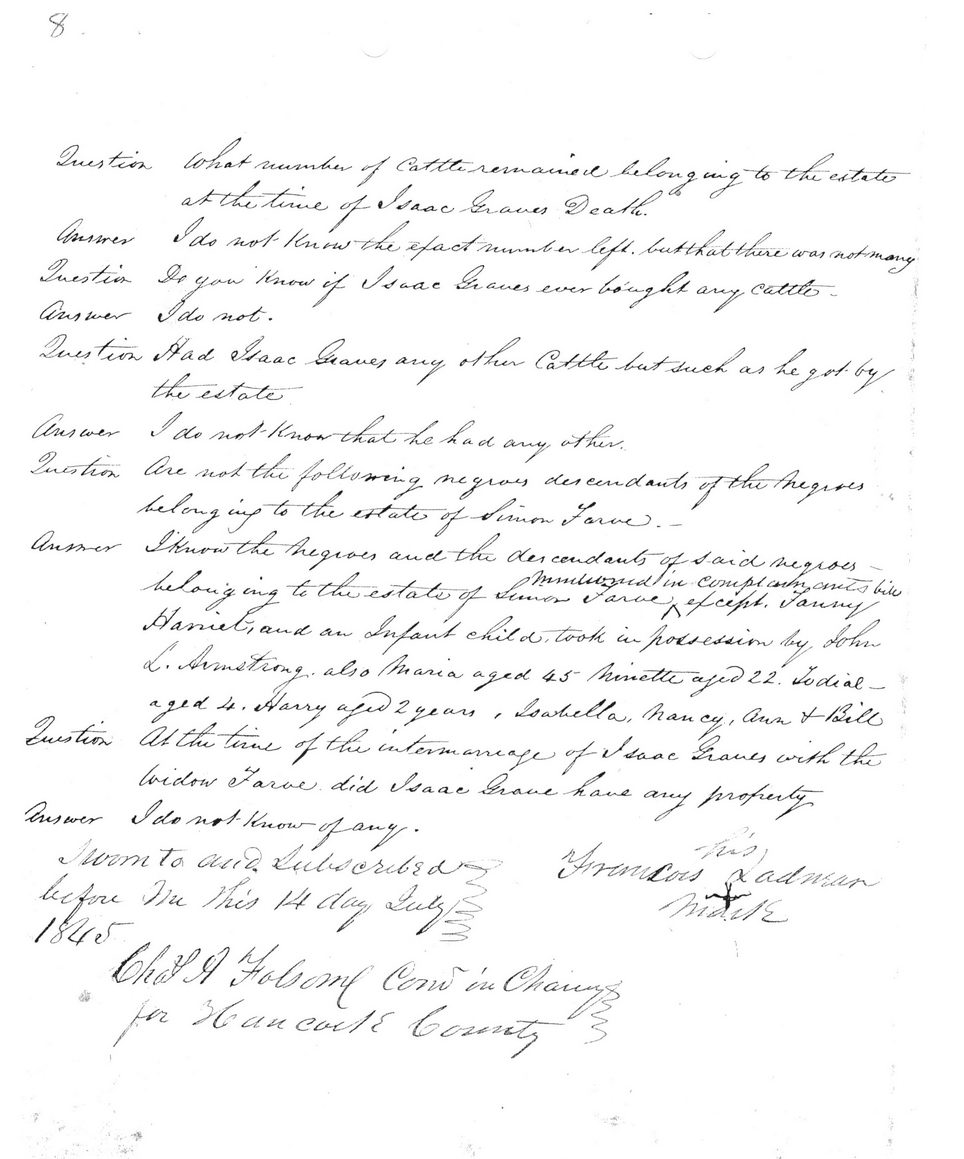 8
Question What number of Cattle remained belonging to the estate
at the time of Isaac Graves Death.
Answer I do not Know the exact number left. but that there was not many
Question Do you Know if Isaac Graves ever bought any Cattle -
Answer I do not.
Question Had Isaac Graves any other Cattle but such as he got by
the estate
Answer I do not Know that he had any other.
Question Are not the following negroes descendants of the Negroes
belonging to the estate of Simon Farve. -
Answer I Know the Negroes and the descendants of said negroes -
mentioned in complainants bill
belonging to the estate of Simon Farve, ^ except. Fanny
Harriet, and an Infant child. took in possession by John
L. Armstrong. also Maria aged 45 Ninette aged 22. -
aged 4. Harry aged 2 years, Isabella, Nancy, Ann & Bill
Question At the time of the intermarreage of Isaac Graves with the
Widow Farve did Isaac Grave have any property
Answer I do not Know of any.
Sworn to and Subscribed
before Me this 14 day July
1845
his
Francois Ladnear
mark
Chas A Folsom Com in Chancy
for Hancock County